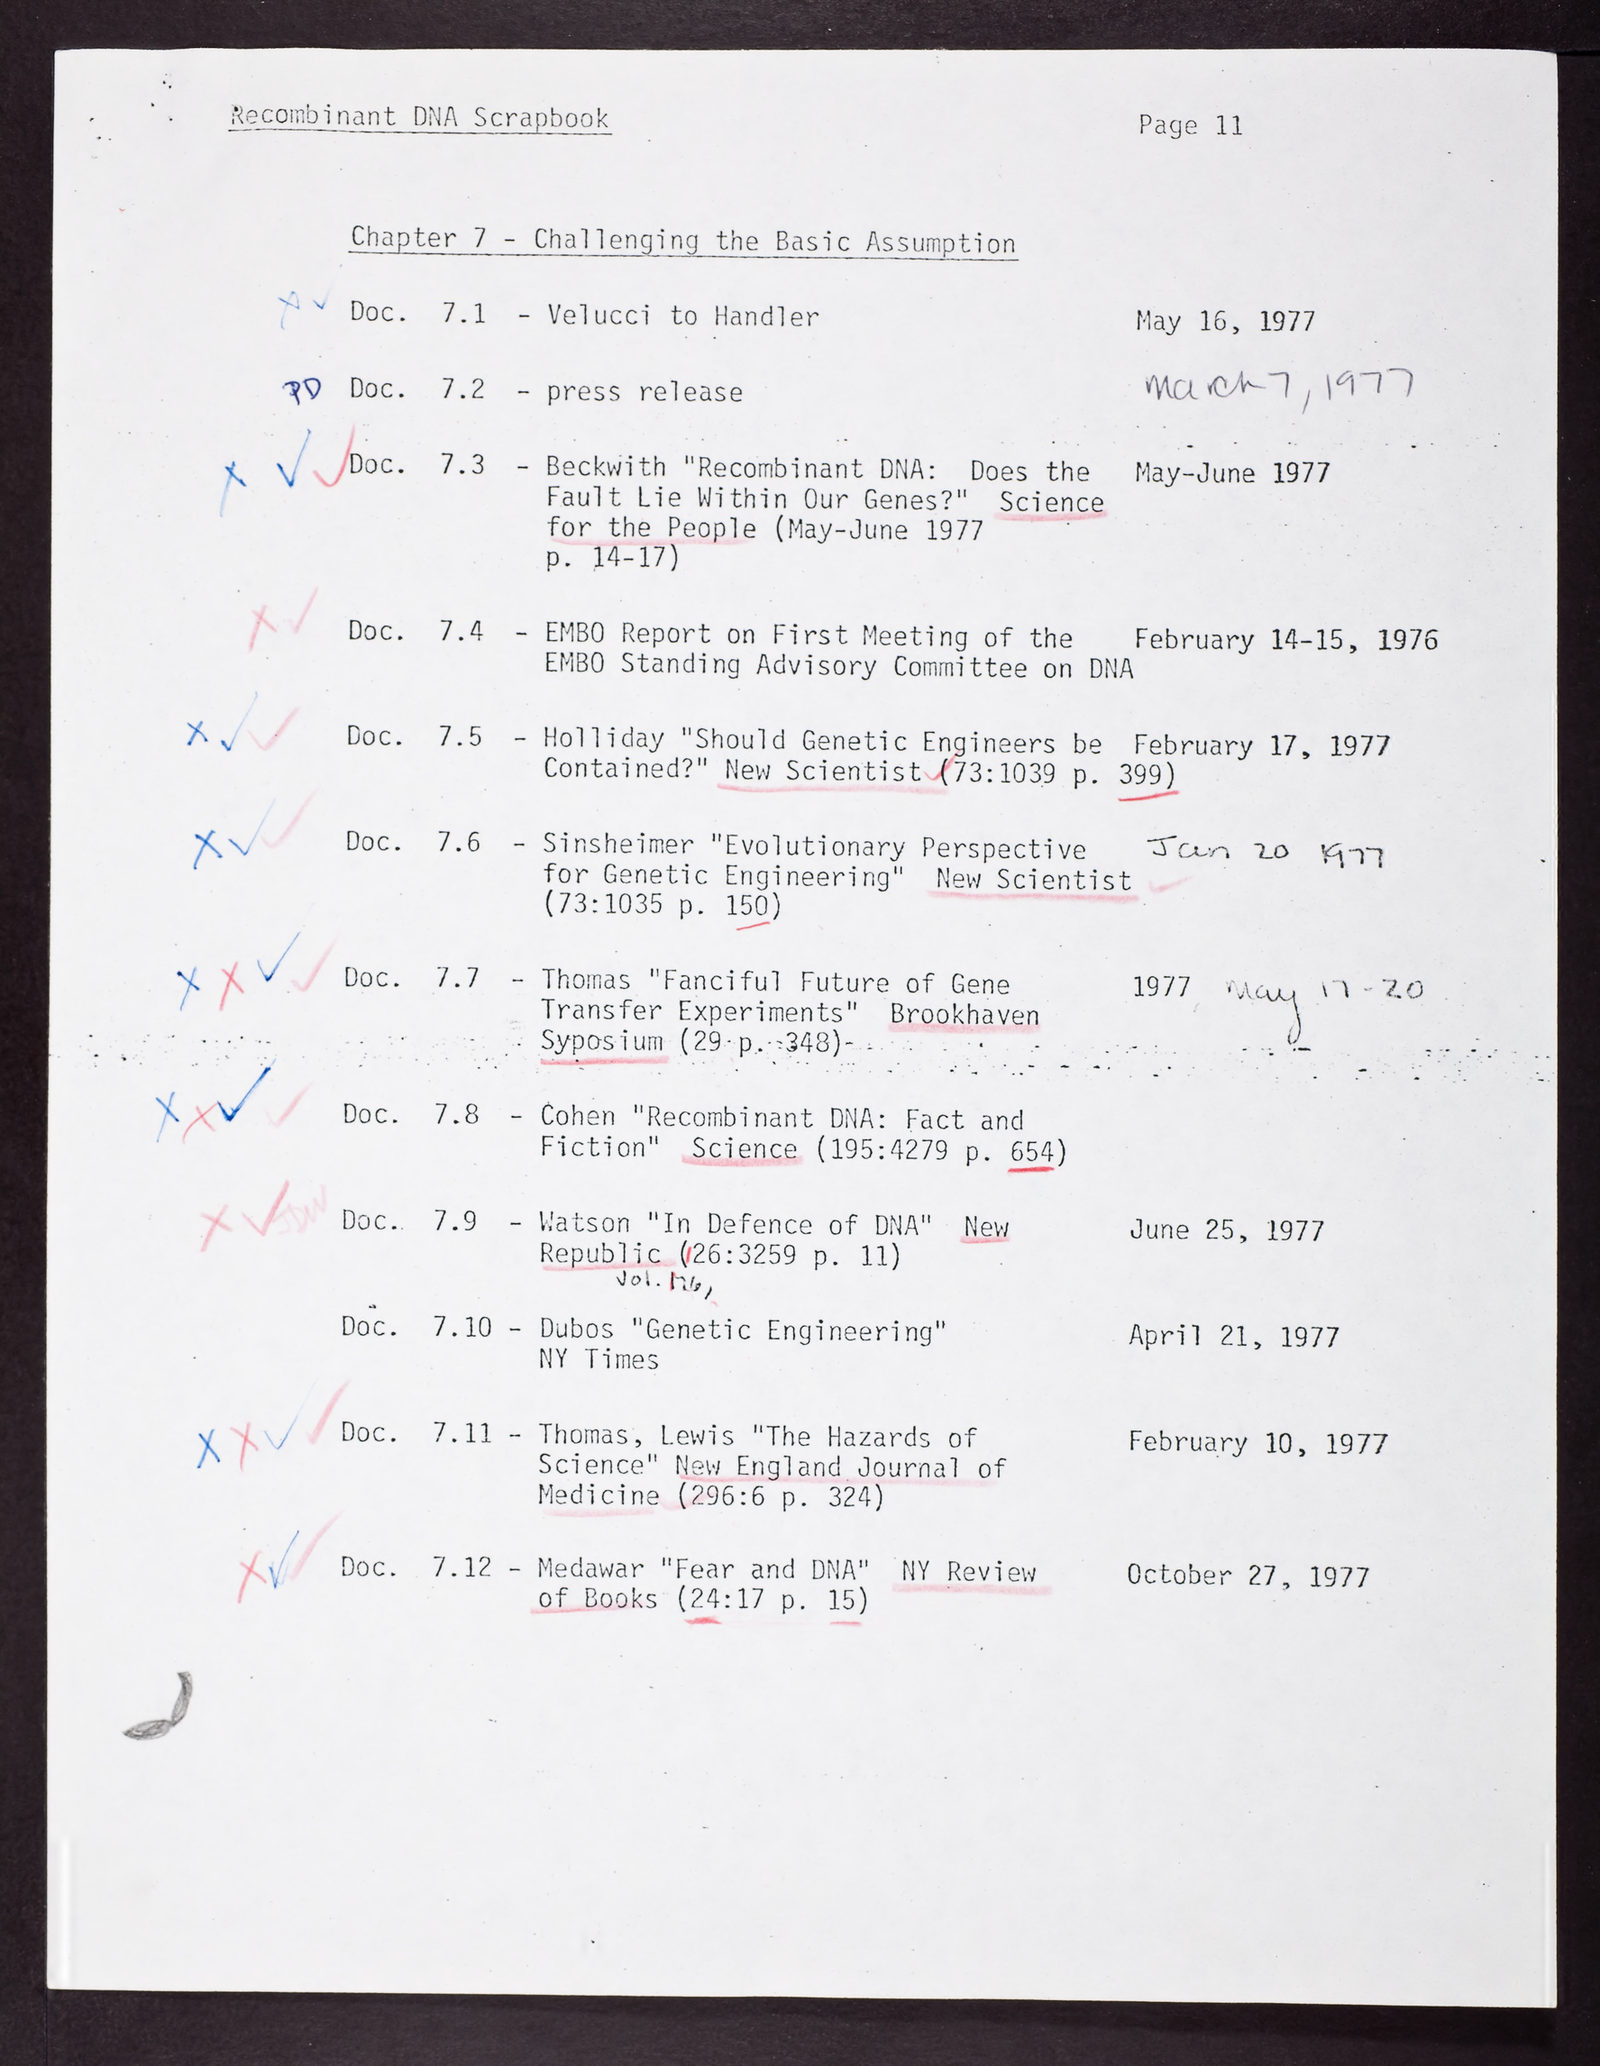 Recombinant DNA Scrapbook Page 11
Chapter 7 - Challenging the Basic Assumption
Doc. 7.1 - Velucci to Handler May 16, 1977
PD Doc. 7.2 - press release March 7, 1977
Doc. 7.3 - Beckwith "Recombinant DNA: Does the May-June 1977
Fault Lie Within Our Genes?" Science
for the People (May-June 1977
p. 14-17)
Doc. 7.4 - EMBO Report on First Meeting of the February 14-15, 1976
EMBO Standing Advisory Committee on DNA
Doc. 7.5 - Holliday "Should Genetic Engineers be February 17, 1977
Contained?" New Scientist (73:1039 p. 399)
Doc. 7.6 - Sinsheimer "Evolutionary Perspective Jan 20 1977
for Genetic Engineering" New Scientist
(73:1035 p. 150)
Doc. 7.7 - Thomas "Fanciful Future of Gene 1977 May 17-20
Transfer Experiments" Brookhaven
Syposium (29 p. 348)
Doc. 7.8 - Cohen "Recombinant DNA: Fact and
Fiction" Science (195:4279 p. 654)
Doc. 7.9 - Watson "In Defence of DNA" New June 25, 1977
Republic (26:3259 p. 11)
Vol. 176,
Doc. 7.10 - Dubos "Genetic Engineering" April 21, 1977
NY Times
Doc. 7.11 - Thomas, Lewis "The Hazards of February 10, 1977
Science" New England Journal of
Medicine (296:6 p. 324)
Doc. 7.12 - Medawar "Fear and DNA" NY Review October 27, 1977
of Books (24:17 p. 15)